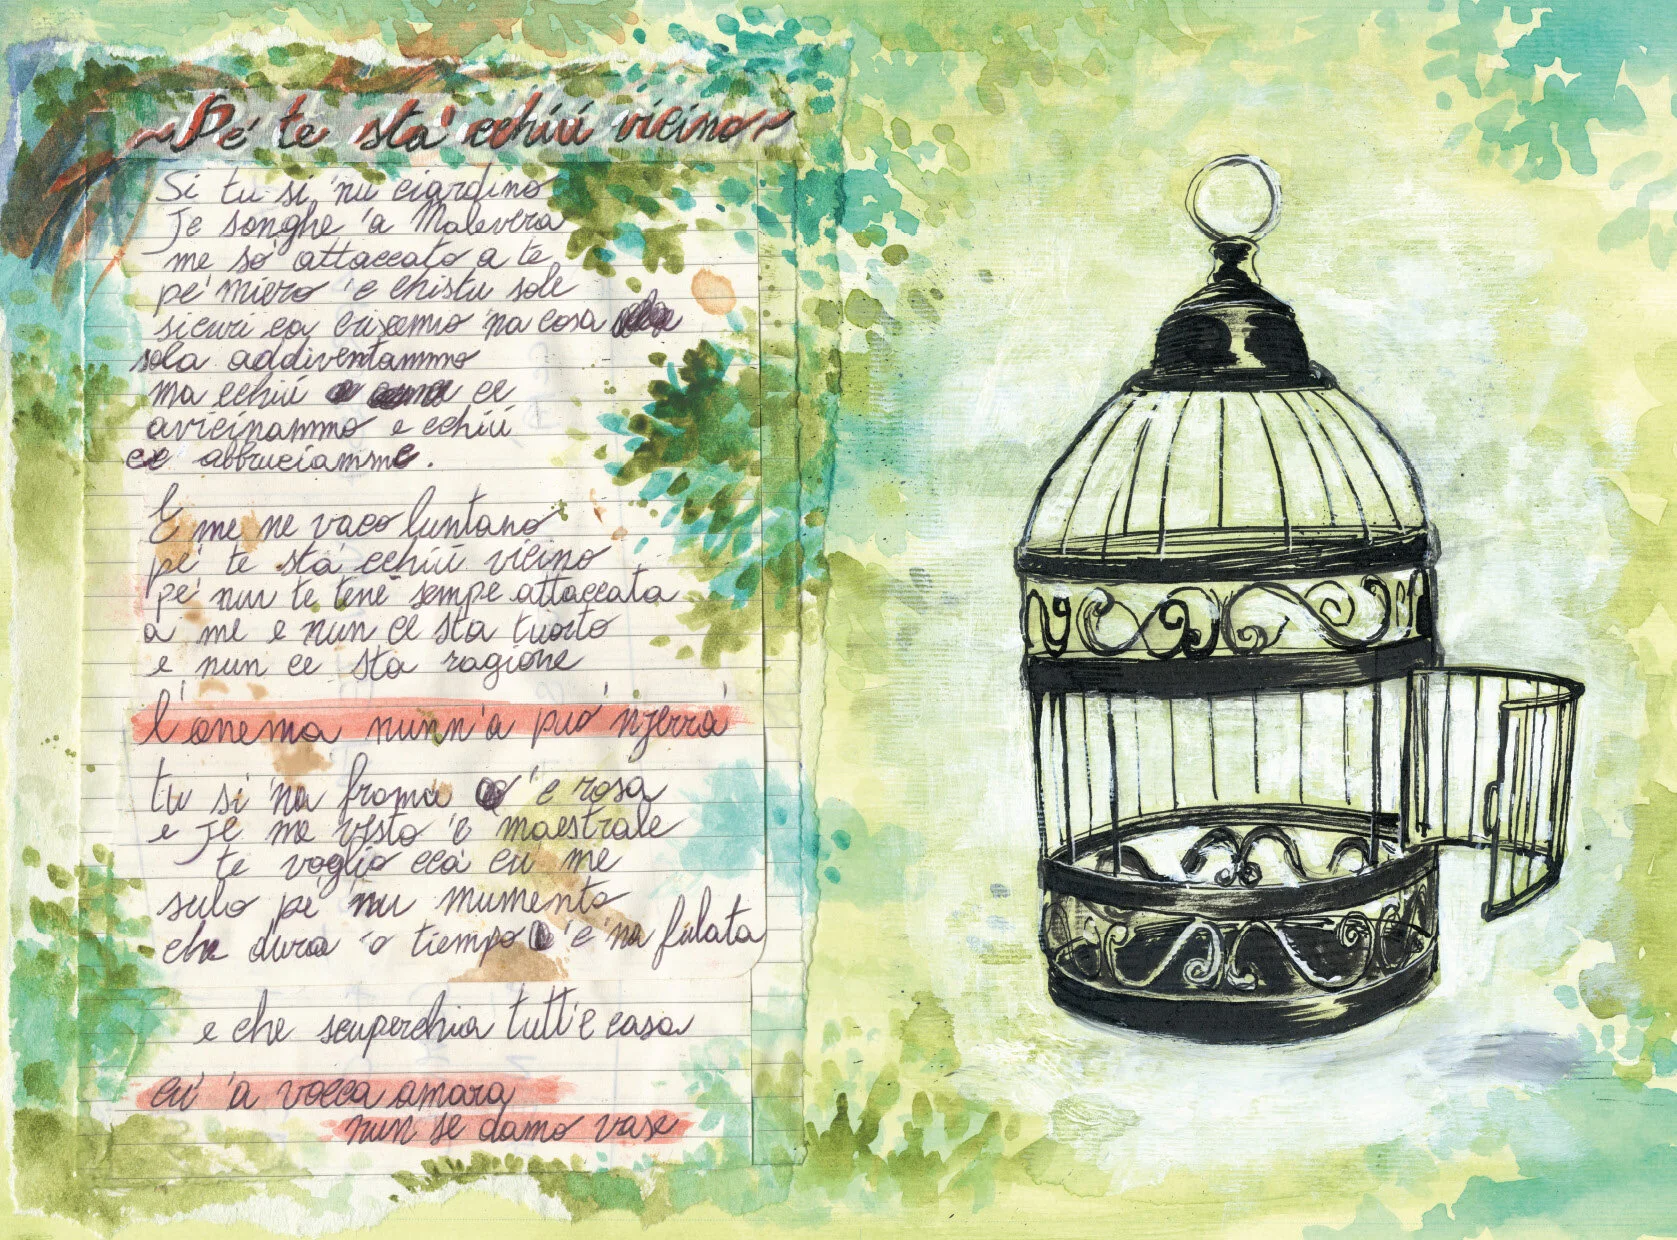 ~ Pe' te sta' cchiú vicino ~
Si tu si 'nu ciardino
Je songhe 'a Malevera
me so' attaccato a te
pe' miero 'e chistu sole
sicuri ca criscenno 'na cosa
sola addiventammo
ma cchiú ce
avicinammo e cchiú
ce abbruciamme.
E me ne vaco luntano
pe' te sta' cchiú vicino
pe' nun te tené sempe attaccata
a me e nun ce sta tuorto
e nun ce sta ragione
l'anema nunn'a può 'nzerrà
tu si 'na fronna 'e rosa
e je me vesto 'e maestrale
te voglio ccà cu' me
sulo pe' nu mumento
che dura 'o tiempo 'e 'na fulata
e che scuperchia tutt'e casa
cu' 'a vocca amara
nun se dano vase